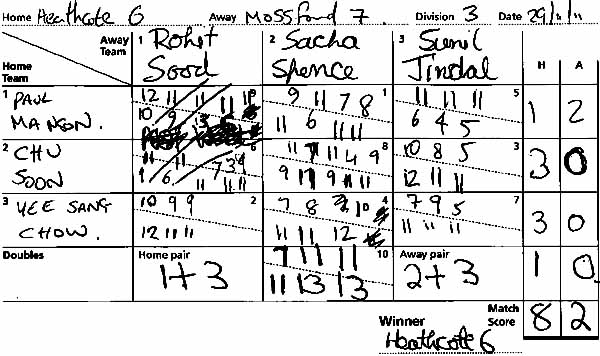 Home Heathcote 6 Away Mossford 7 Division 3 Date 29/11/11
Away Team
Home Team
1 Rohit Sood
2 Sacha Spence
3 Sunil Jindal
H A
1 PAUL MANSON.
12 11 11 11
10 9
9 11 7 8 1
11 6 11 11
11 11 11 5
6 4 5
1 2
2 CHU SOON
6
7 3 9
11 11 11
11 7 11 4 9 8
9 11 9 11 11
10 8 5 3
12 11 11
3 0
3 YEE SANG CHOW.
10 9 9 2
12 11 11
7 8 10 4
11 11 12
7 9 5 7
11 11 11
3 0
Doubles
Home pair
1+3
7 11 11 10
11 13 13
Away pair
2+3
1 0
Winner
Match Score 8 2
Heathcote 6